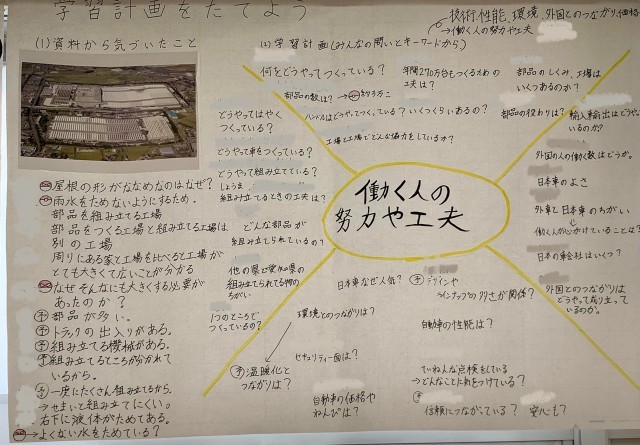 学習計画をたてよう
技術、性能、環境、外国とのつながり、価格
→働く人の努力や工夫
(1)資料から気づいたこと
屋根の形がななめなのはなぜ?
雨水をためないようにするため。
部品を組み立てる工場
部品をつくる工場と組み立てる工場は
別の工場
周りにある家と工場を比べると工場が
とても大きくて広いことが分かる
なぜそんなにも大きくする必要が
あったのか?
予 部品が多い。
予 トラックの出入りがある。
予 組み立てる機械がある。
予 組み立てるところが分かれて
いるから。
予 一度にたくさん組み立てるから。
→せまいと組み立てにくい。
右下に液体がためてある。
→よくない水をためている?
(2)学習計画(みんなの問いとキーワードから)
何をどうやってつくっている?
年間270万台もつくるための
工夫は?
部品のしくみ、工場は
いくつあるのか?
部品の数は?→約3万こ
どうやってはやく
つくっている?
ハンドルはどうやってつくっている?
いくつくらいあるの?
部品の役わりは?
輸入輸出はどうなっ
いるのか?
工場と工場でどんな協力をしているか?
どうやって車をつくっている?
どうやって組み立てている?
組み立てるときの工夫は?
どんな部品が
組み立てられているの?
他の県と愛知県の
組み立てられてる物の
ちがい
1つのところで
つくっているの?
働く人の
努力や工夫
外国の人の働く数はどうか。
日本車のよさ
外車と日本車のちがい
働く人が心がけていることは?
日本の車会社はいくつ?
外国とのつながりは
どうやって成り立って
いるのか。
日本車なぜ人気?
予 デザインや
ラインナップの多さが関係?
環境とのつながりは?
自動車の性能は?
セキュリティー面は?
予 温暖化と
つながりは?
ていねいな点検をしている
→どんなことに気をつけている?
自動車の価格や
ねんぴは?
信頼につながっている?
安心も?